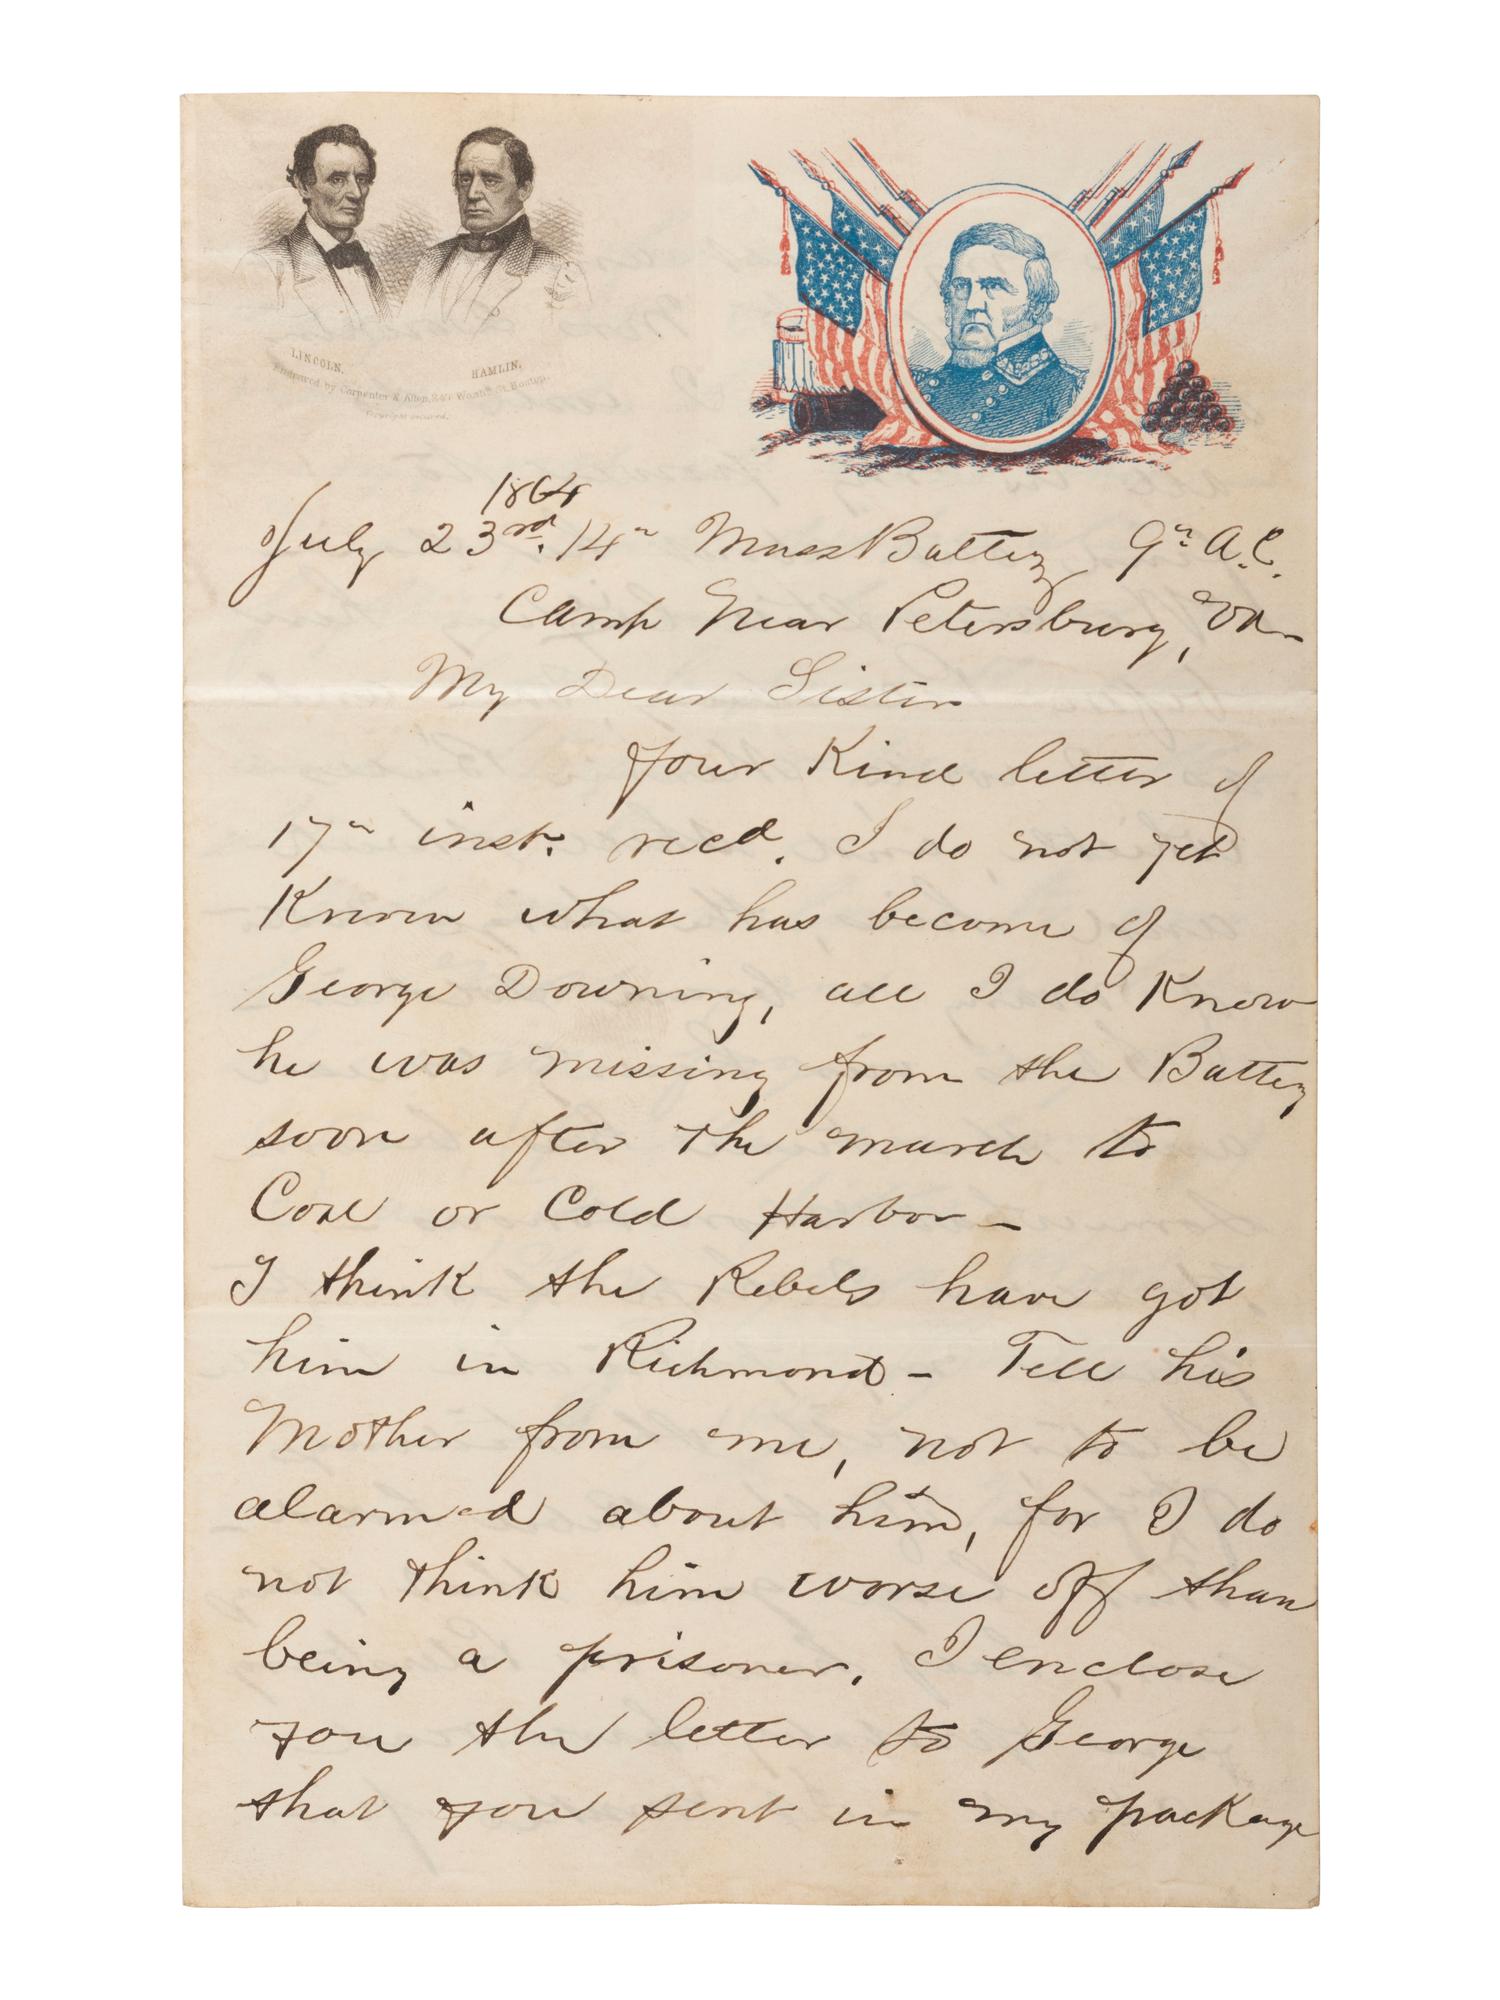 LINCOLN.
HAMLIN.
Engraved by Carpenter & Allen, 247 Wash'n St. Boston.
Copyright secured.
1864
July 23rd. 14th Mass Battery 9th A.C.
Camp Near Petersburg, Va
My Dear Sister
Your Kind letter of
17th inst. recd. I do not yet
Know what has become of
George Downing, all I do Know
he was missing from the Battery
soon after the march to
Coal or Cold Harbor –
I think the Rebels have got
him in Richmond – Tell his
Mother from me, not to be
alarmed about him, for I do
not think him worse off than
being a prisoner. I enclose
you the letter to George
that you sent in my package